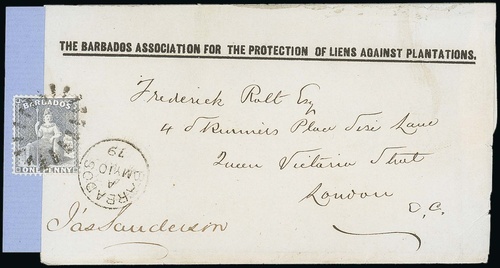 THE BARBADOS ASSOCIATION FOR THE PROTECTION OF LIENS AGAINST PLANTATIONS.
Frederick Rolt Esq
4 Skinners Place Size Lane
Queen Victoria Street
London
E.C.
BARBADOS
ONE PENNY
BARBADOS
A
MY 10
79
Jas Sanderson